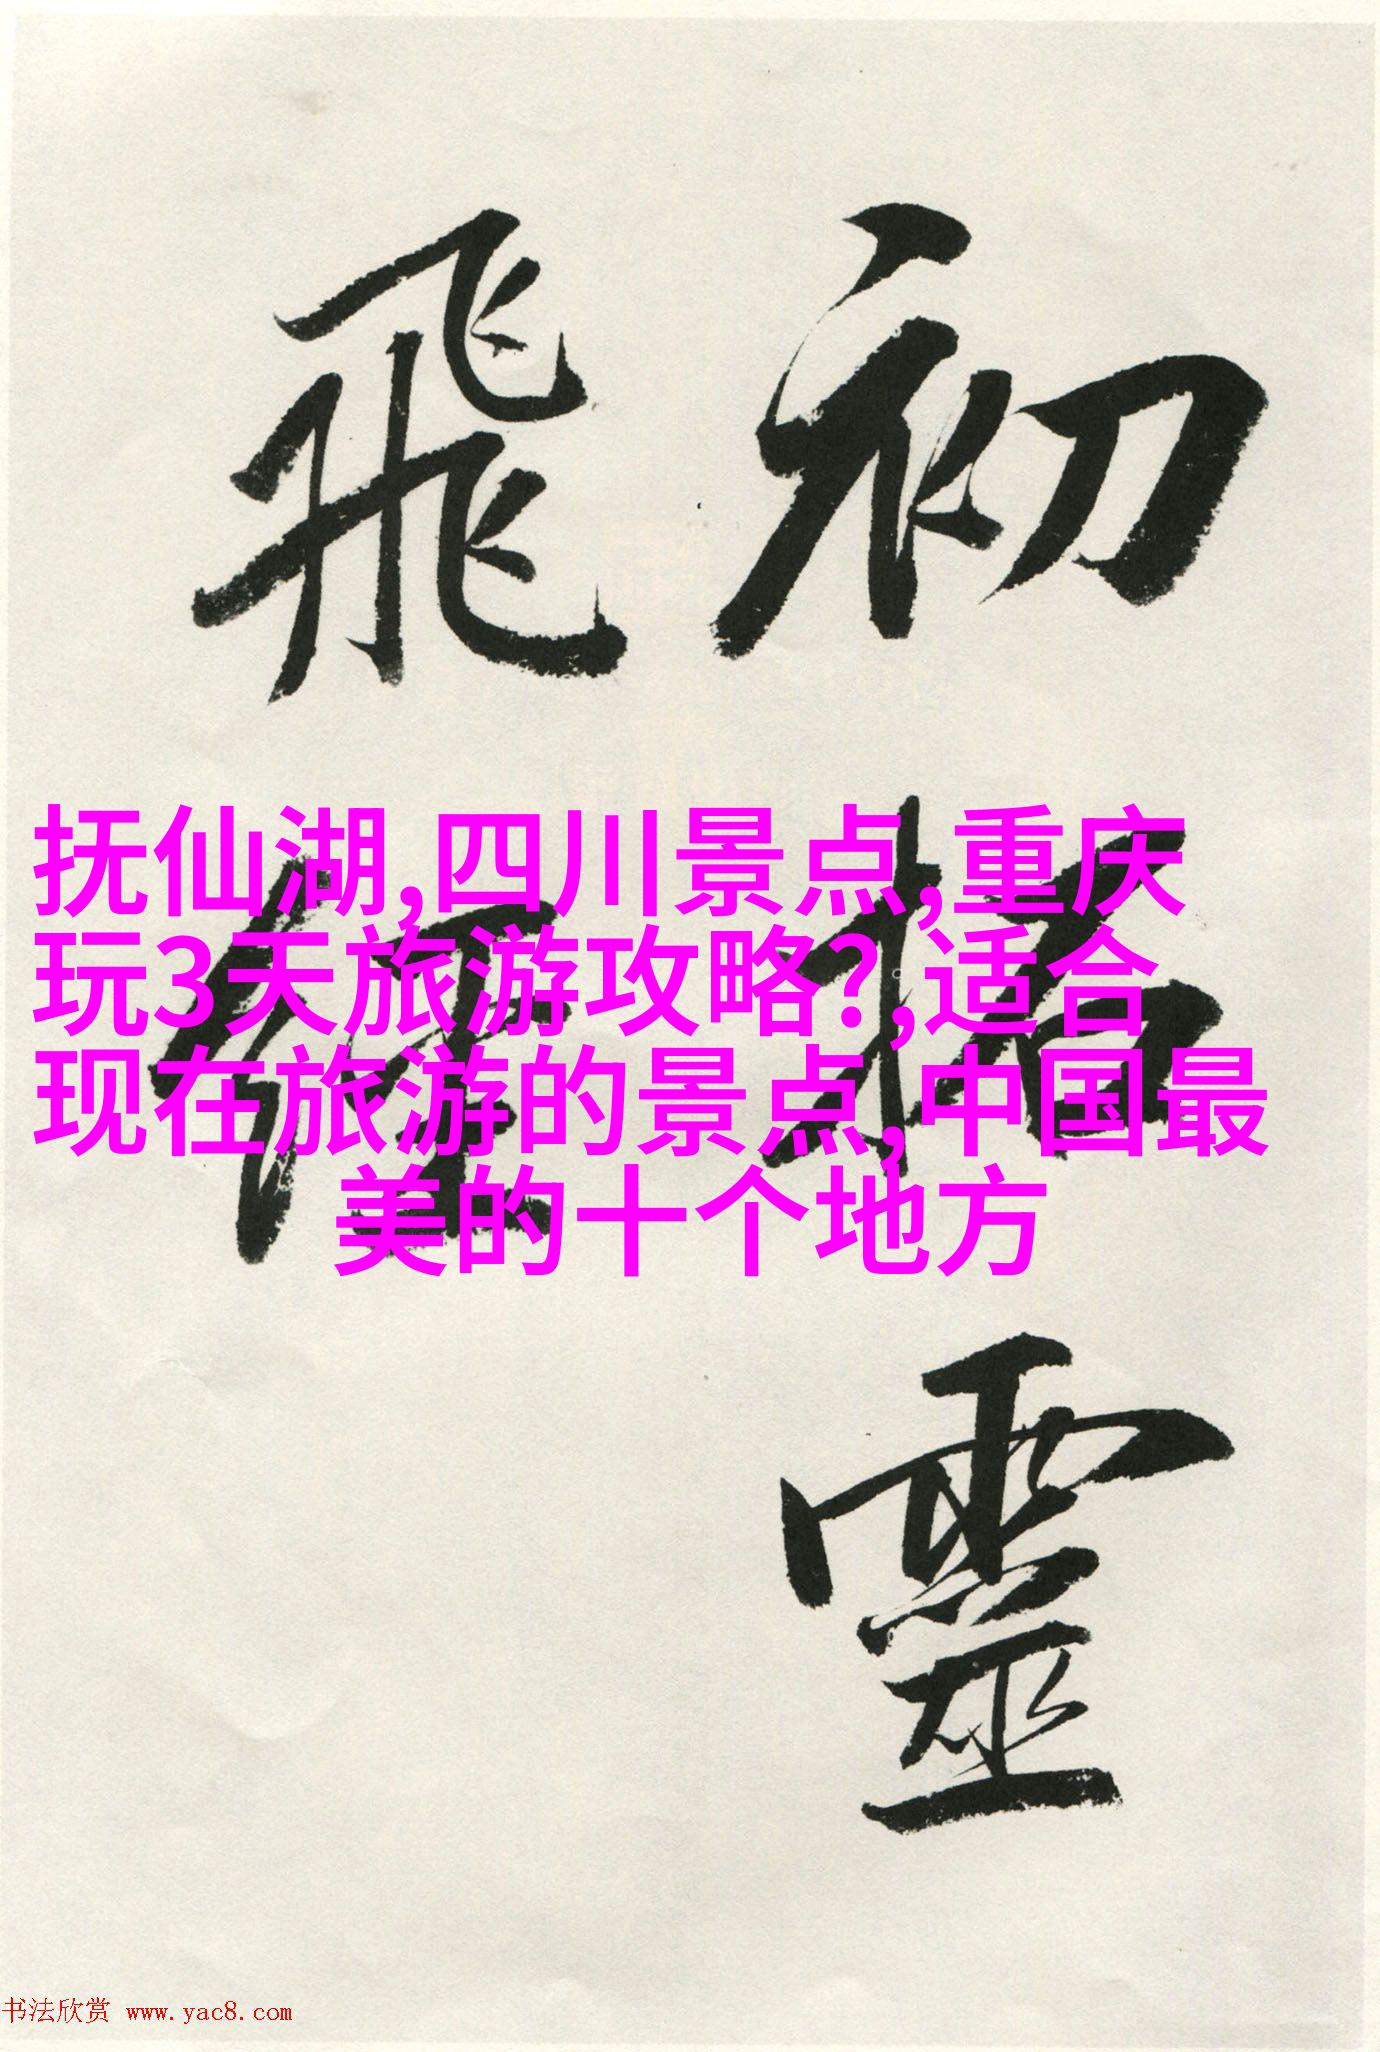 初拓靈
飛經
抚仙湖,四川景点,重庆
玩3天旅游攻略?,适合
现在旅游的景点,中国最
美的十个地方
书法欣赏 www.yac8.com